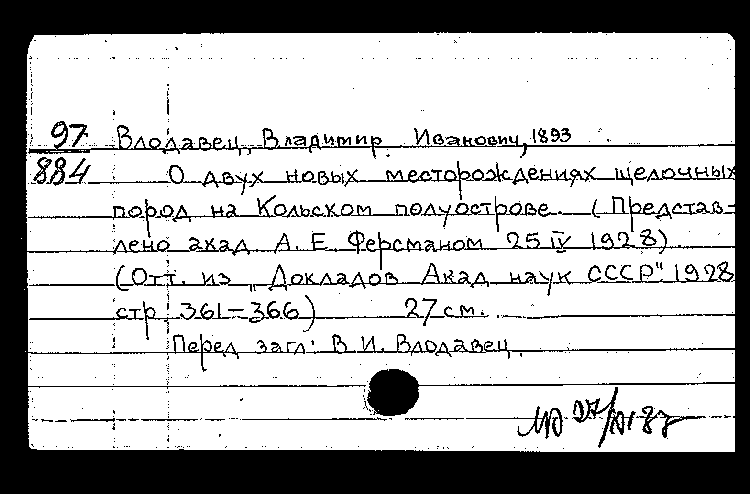 97 Влодавец, Владимир Иванович, 1893
884 О двух новых месторождениях щелочных
пород на Кольском полуострове. (Представ-
лено акад А. Е. Ферсманом 25 IV 1928)
(Отт. из „Докладов Акад наук СССР" 1928
стр 361-366) 27 см.
Перед загл: В. И. Влодавец.